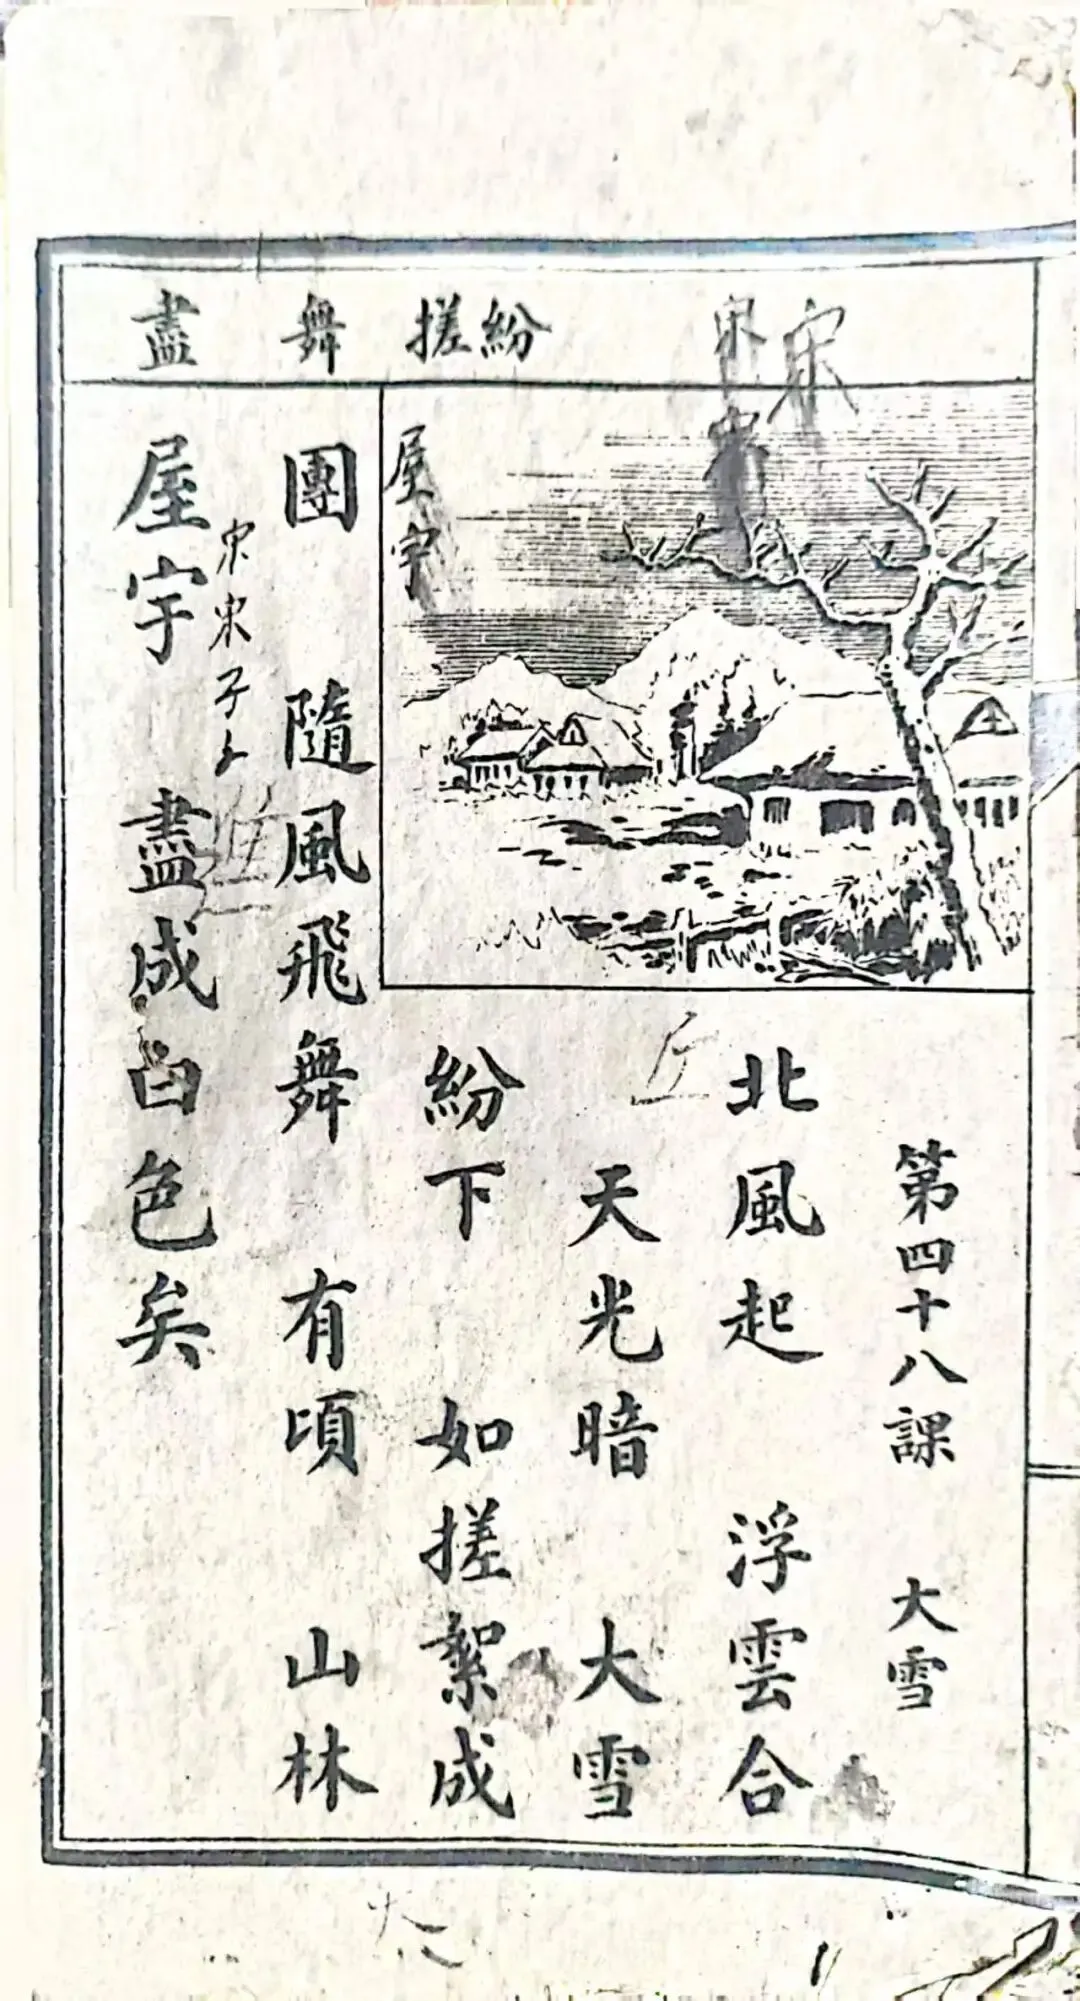 第四十八課 大雪
北風起 浮雲合
天光暗 大雪
紛下 如搓絮成
團 隨風飛舞 有頃 山林
屋宇 盡成白色矣
紛搓
舞
盡
宋
屋宇